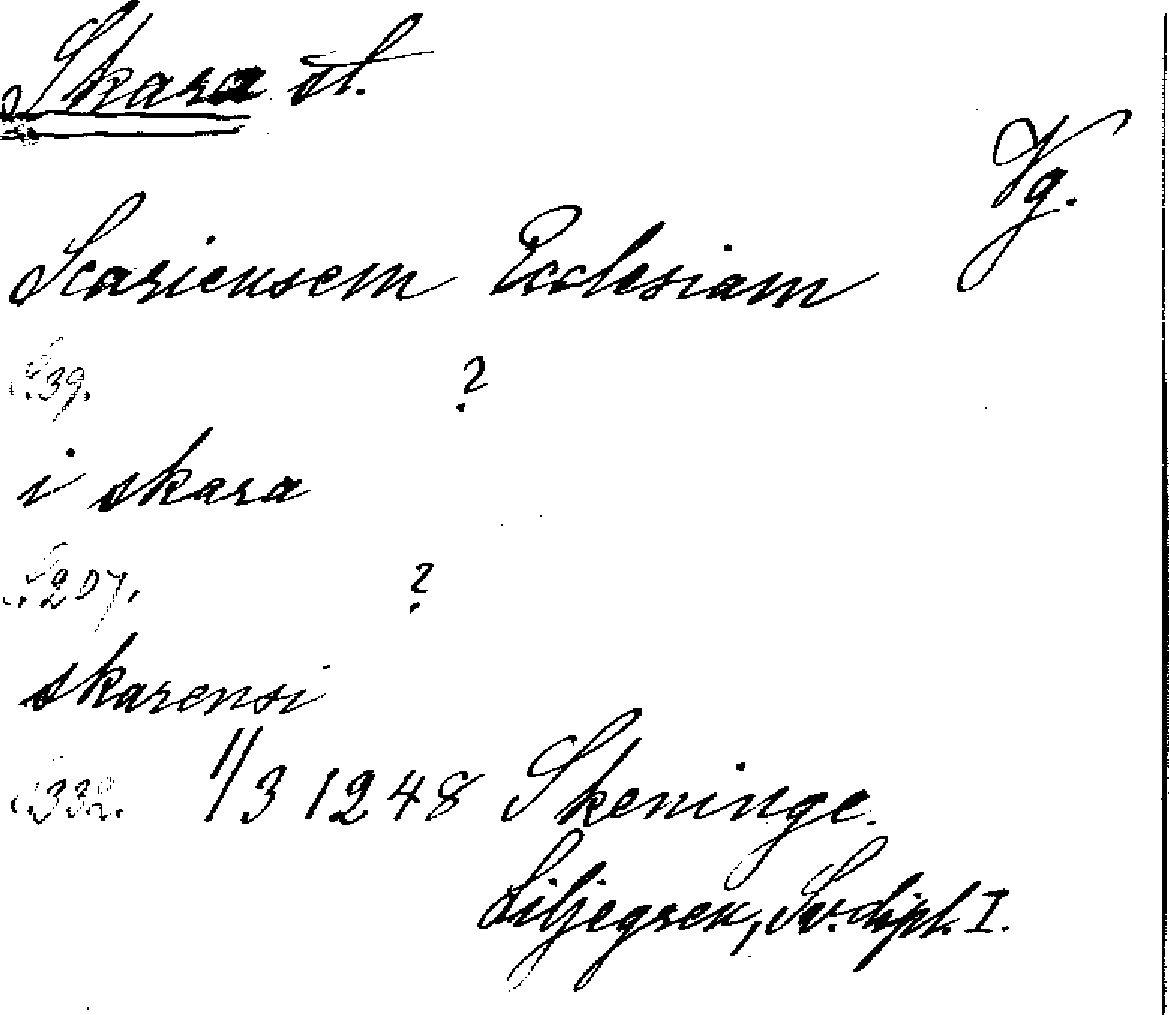 Skara st.
Vg.
Scariensem Ecclesiam
S. 39. ?
i skara
S. 207. ?
skarensi
S. 332. 11/3 1248 Skeninge.
Liljegren, Sv. dipl. I.